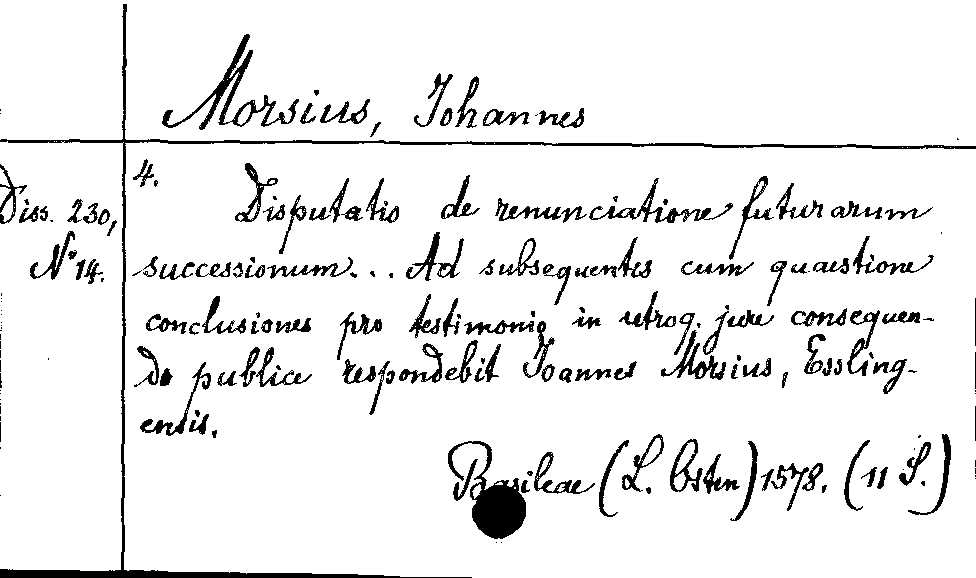 Morsius, Johannes
Diss. 230,
No 14.
4.
Disputatio de renunciatione futurarum
successionum... Ad subsequentes cum quaestione
conclusiones pro testimonio in utroq. jure consequen-
do publice respondebit Joannes Morsius, Essling-
ensis.
Basileae (L. Osten) 1578. (11 S.)